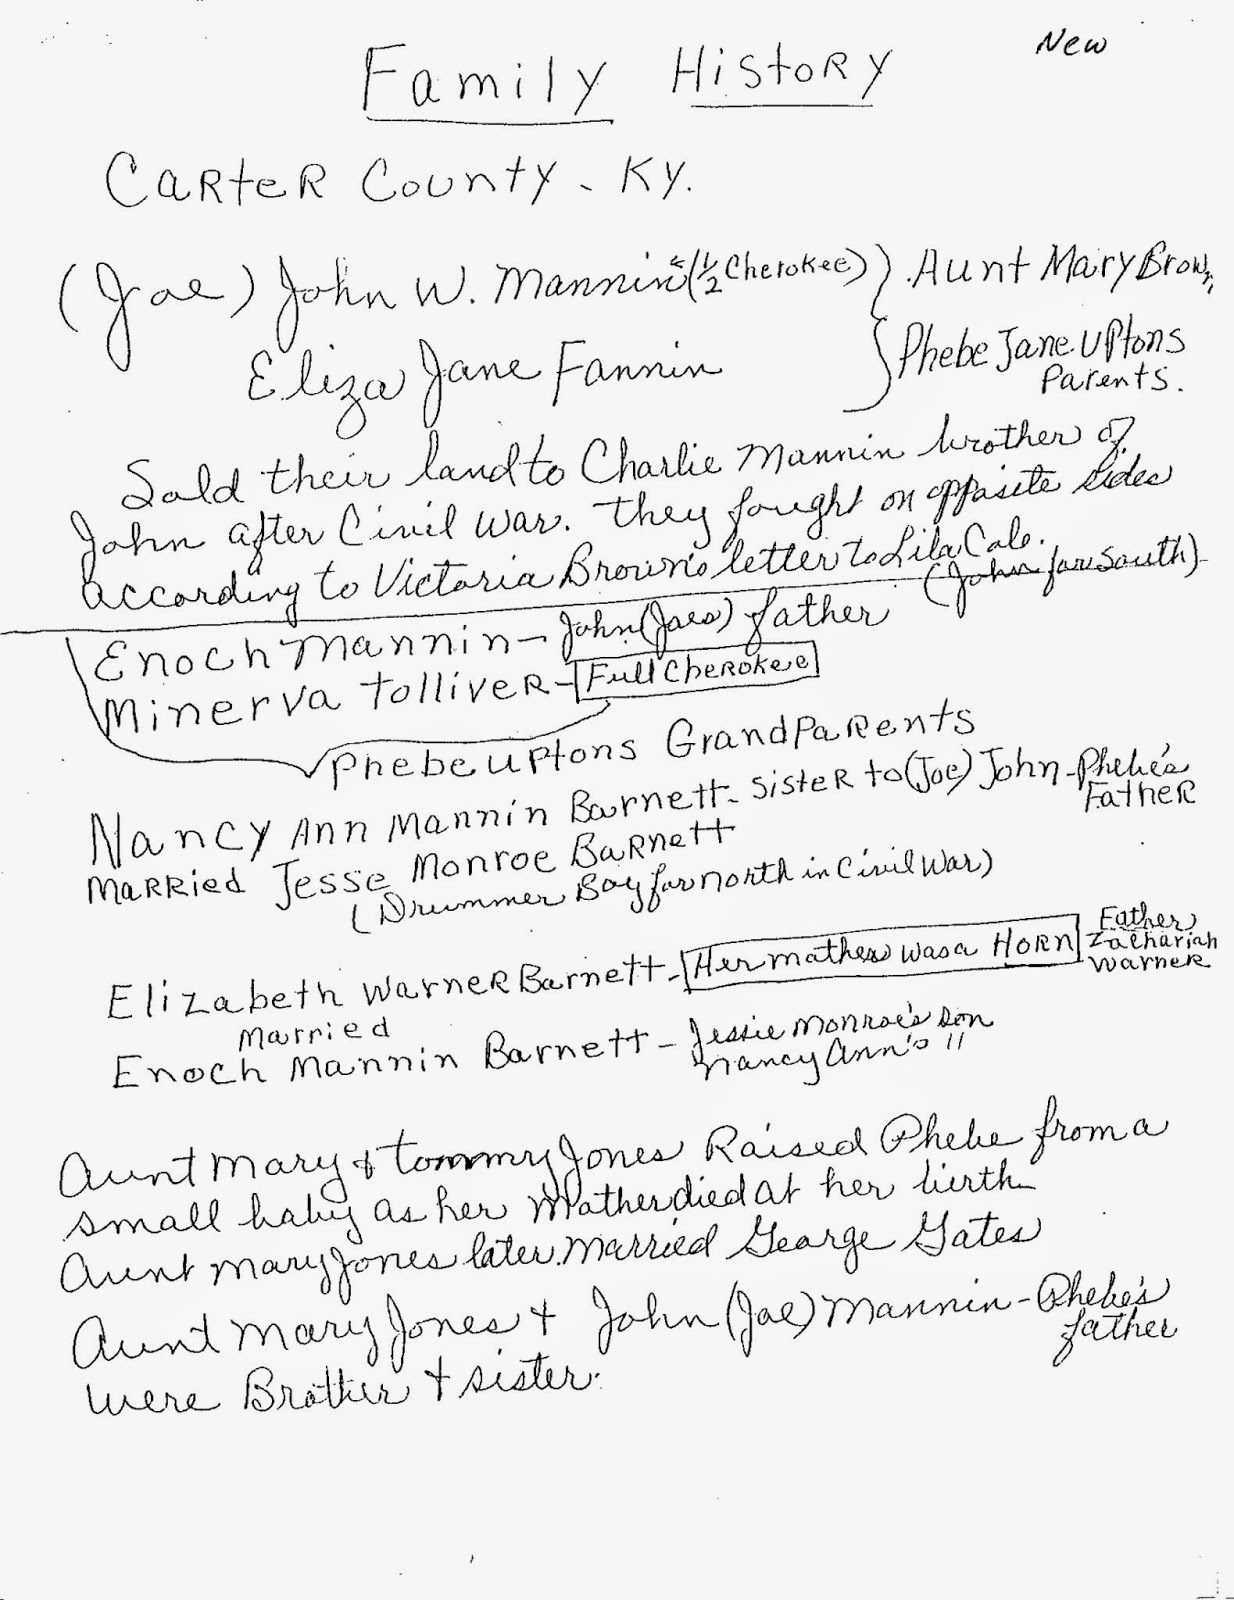 New
Family History
Carter County - Ky.
(Joe) John W. Mannin (1/2 Cherokee) } Aunt Mary Brown,
Eliza Jane Fannin } Phebe Jane Uptons
Parents.
Sold their land to Charlie Mannin brother of
John after Civil War. They fought on opposite sides
according to Victoria Brown's letter to Lila Cole.
(John for South)
Enoch Mannin - John (Joes) father
Minerva Tolliver - Full Cherokee
Phebe Uptons GrandParents
Nancy Ann Mannin Barnett - sister to (Joe) John - Phebe's
Father
Married Jesse Monroe Barnett
(Drummer Boy for North in Civil War)
Elizabeth Warner Barnett - Her mother was a HORN Father
Zachariah
Warner
Married
Enoch Mannin Barnett - Jessie Monroe's son
Nancy Ann's "
Aunt Mary & Tommy Jones Raised Phebe from a
small baby as her Mother died at her birth
Aunt Mary Jones later Married George Gates
Aunt Mary Jones & John (Joe) Mannin - Phebe's
father
were Brother & sister.